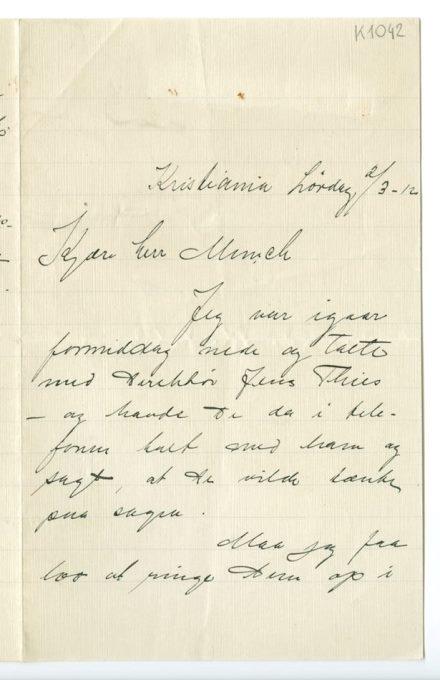 K1042
Kristiania Lørdag 2/3-12
Kjære Herr Munch
Jeg var igaar
formiddag nede og talte
med Direktør Jens Thiis
– og havde De da i tele-
fonen talt med ham og
sagt, at De vilde tænke
paa sagen.
Maa jeg faa
lov at ringe Dem op i